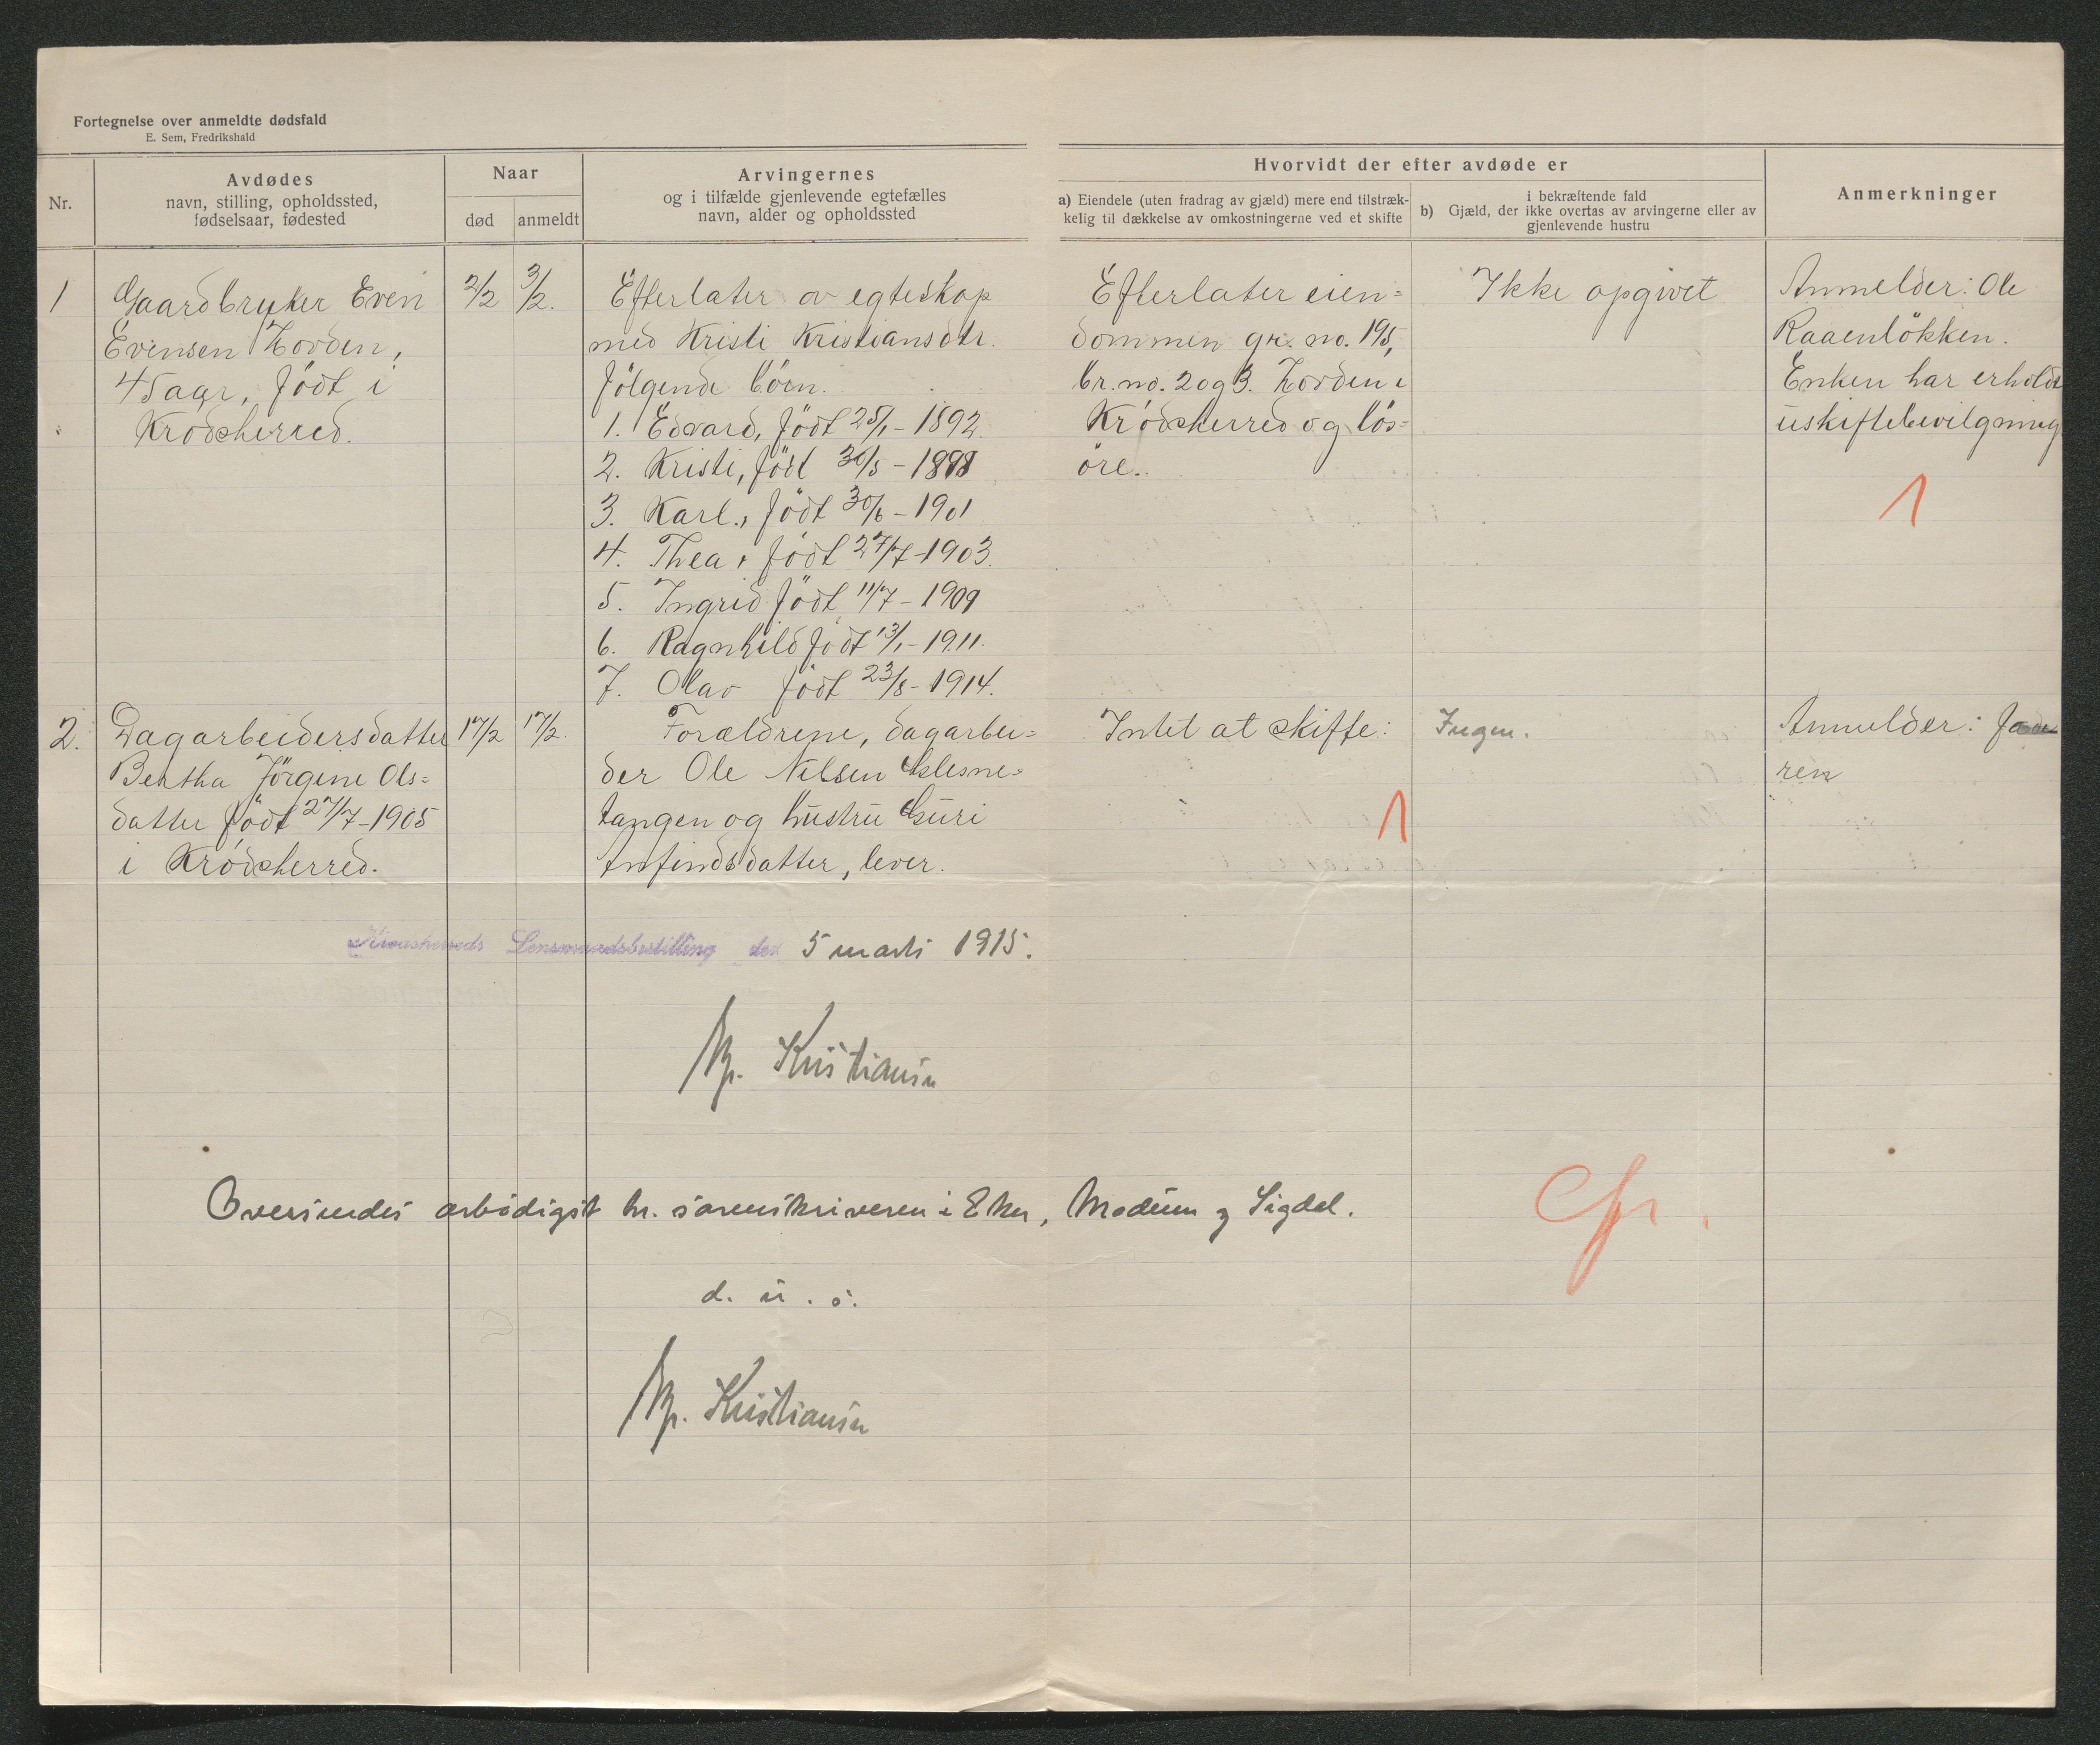 Fortegnelse over anmeldte dødsfald
E. Sem, Fredrikshald
Nr.
Avdødes
navn, stilling, opholdssted,
fødselsaar, fødested
Naar
død
anmeldt
Arvingernes
og i tilfælde gjenlevende egtefælles
navn, alder og opholdssted
Hvorvidt der efter avdøde er
a) Eiendele (uten fradrag av gjæld) mere end tilstræk-
kelig til dækkelse av omkostningerne ved et skifte
i bekræftende fald
b) Gjæld, der ikke overtas av arvingerne eller av
gjenlevende hustru
Anmerkninger
1
Gaardbruker Even
Evensen
45 aar, født i
Krødsherred.
2/2
3/2.
Efterlater av egteskap
med Kristi Kristiansdtr.
følgende børn.
1. Edvard, født 25/1 - 1892.
2. Kristi, født 30/5 - 1898
3. Karl, født 30/6 - 1901
4. Thea, født 27/7 - 1903.
5. Ingrid født 11/7 - 1909
6. Ragnhild født 13/1 - 1911.
7. Olav født 23/8 - 1914.
Efterlater eien=
dommen gr. no. 195,
br. no. 2 og 3. i
Krødsherred og løs=
øre.
Ikke opgivet
Anmelder: Ole
Raaenløkken.
Enken har erholdt
uskiftebevilgning
1
2.
Dagarbeidersdatter
Bertha Jørgine Ols=
datter født 27/7 - 1905
i Krødsherred.
17/2
17/2.
Forældrene, dagarbei=
der Ole Nilsen Glesne=
tangen og hustru Guri
Anfindsdatter, lever.
Intet at skifte:
1
Ingen.
Anmelder: Fa
ren
Krødsherreds Lensmandsbestilling den 5 marts 1915.
Kristiansen
Oversendes ærbødigst hr. sorenskriveren i Eker, Modum og Sigdal.
d. u. s.
Kristiansen